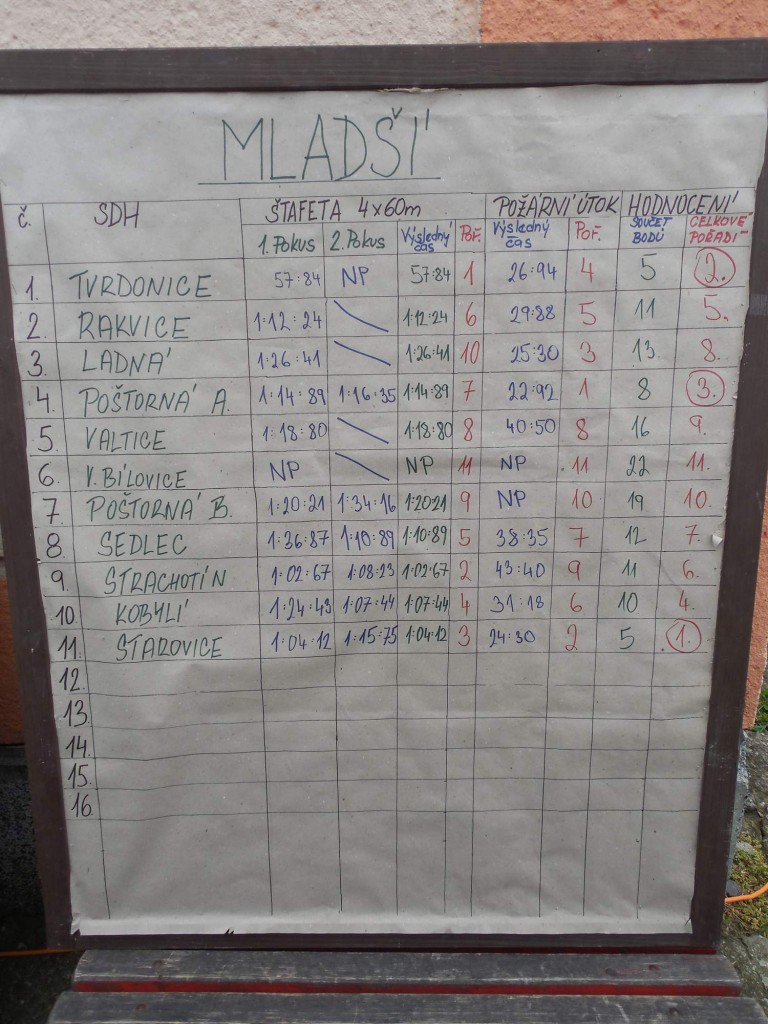 MLADŠÍ
č. SDH ŠTAFETA 4x60m POŽÁRNÍ ÚTOK HODNOCENÍ
1. POKUS 2. POKUS Výsledný čas POŘ. Výsledný čas POŘ. SOUČET BODŮ CELKOVÉ POŘADÍ
1. TVRDONICE 57:84 NP 57:84 1 26:94 4 5 2.
2. RAKVICE 1:12:24 1:12:24 6 29:88 5 11 5.
3. LADNÁ 1:26:41 1:26:41 10 25:30 3 13 8.
4. POŠTORNÁ A. 1:14:89 1:16:35 1:14:89 7 22:92 1 8 3.
5. VALTICE 1:18:80 1:18:80 8 40:50 8 16 9.
6. V.BÍLOVICE NP NP 11 NP 11 22 11.
7. POŠTORNÁ B. 1:20:21 1:34:16 1:20:21 9 NP 10 19 10.
8 SEDLEC 1:36:87 1:10:89 1:10:89 5 38:35 7 12 7.
9. STRACHOTÍN 1:02:67 1:08:23 1:02:67 2 43:40 9 11 6.
10 KOBYLÍ 1:24:43 1:07:44 1:07:44 4 31:18 6 10 4.
11. STAROVICE 1:04:12 1:15:75 1:04:12 3 24:30 2 5 1.
12.
13.
14.
15.
16.